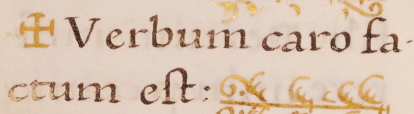 ✠ Verbum caro fa-
ctum est: